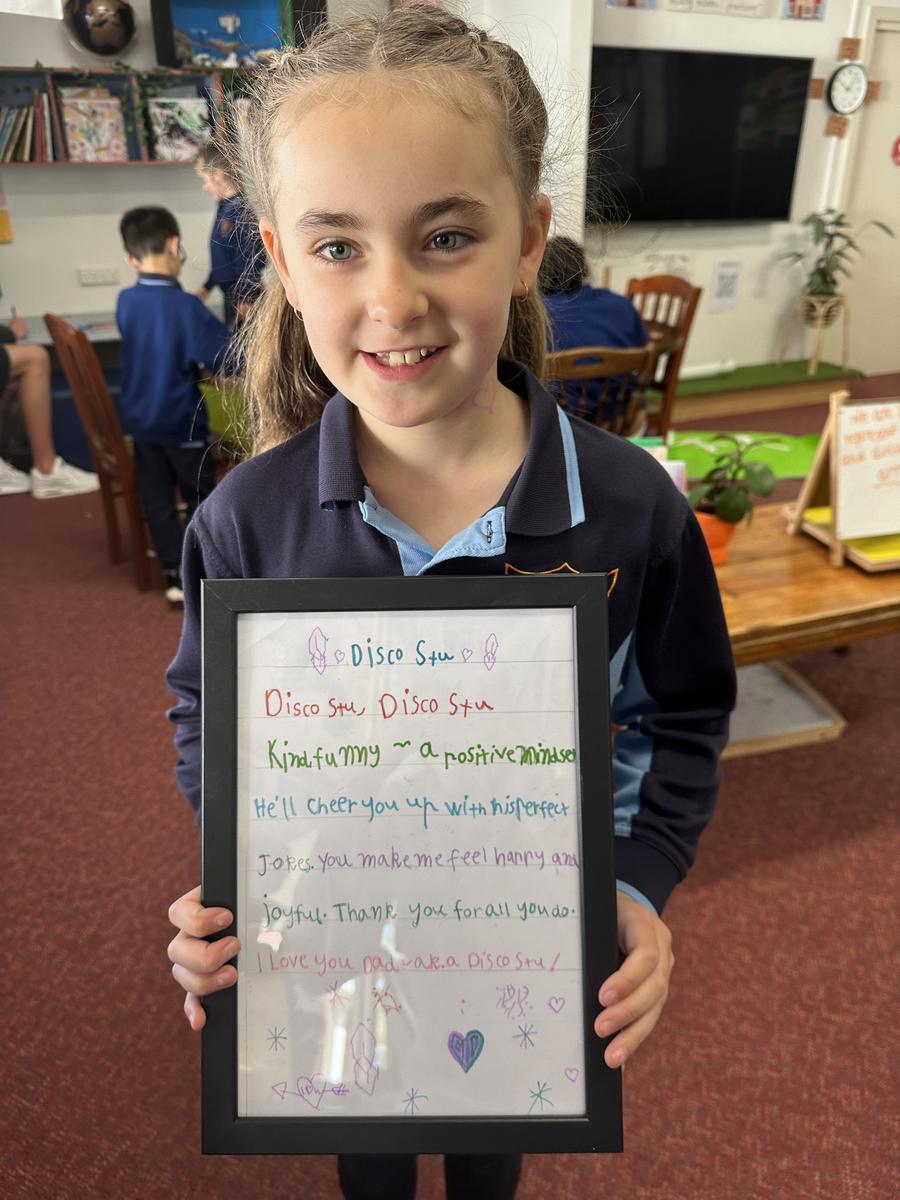 Disco Stu
Disco Stu, Disco Stu
Kind, funny ~ a positive mindset
He'll cheer you up with his perfect
Jokes. You make me feel happy and
joyful. Thank you for all you do.
I Love you Dad ~ a.k.a Disco Stu!